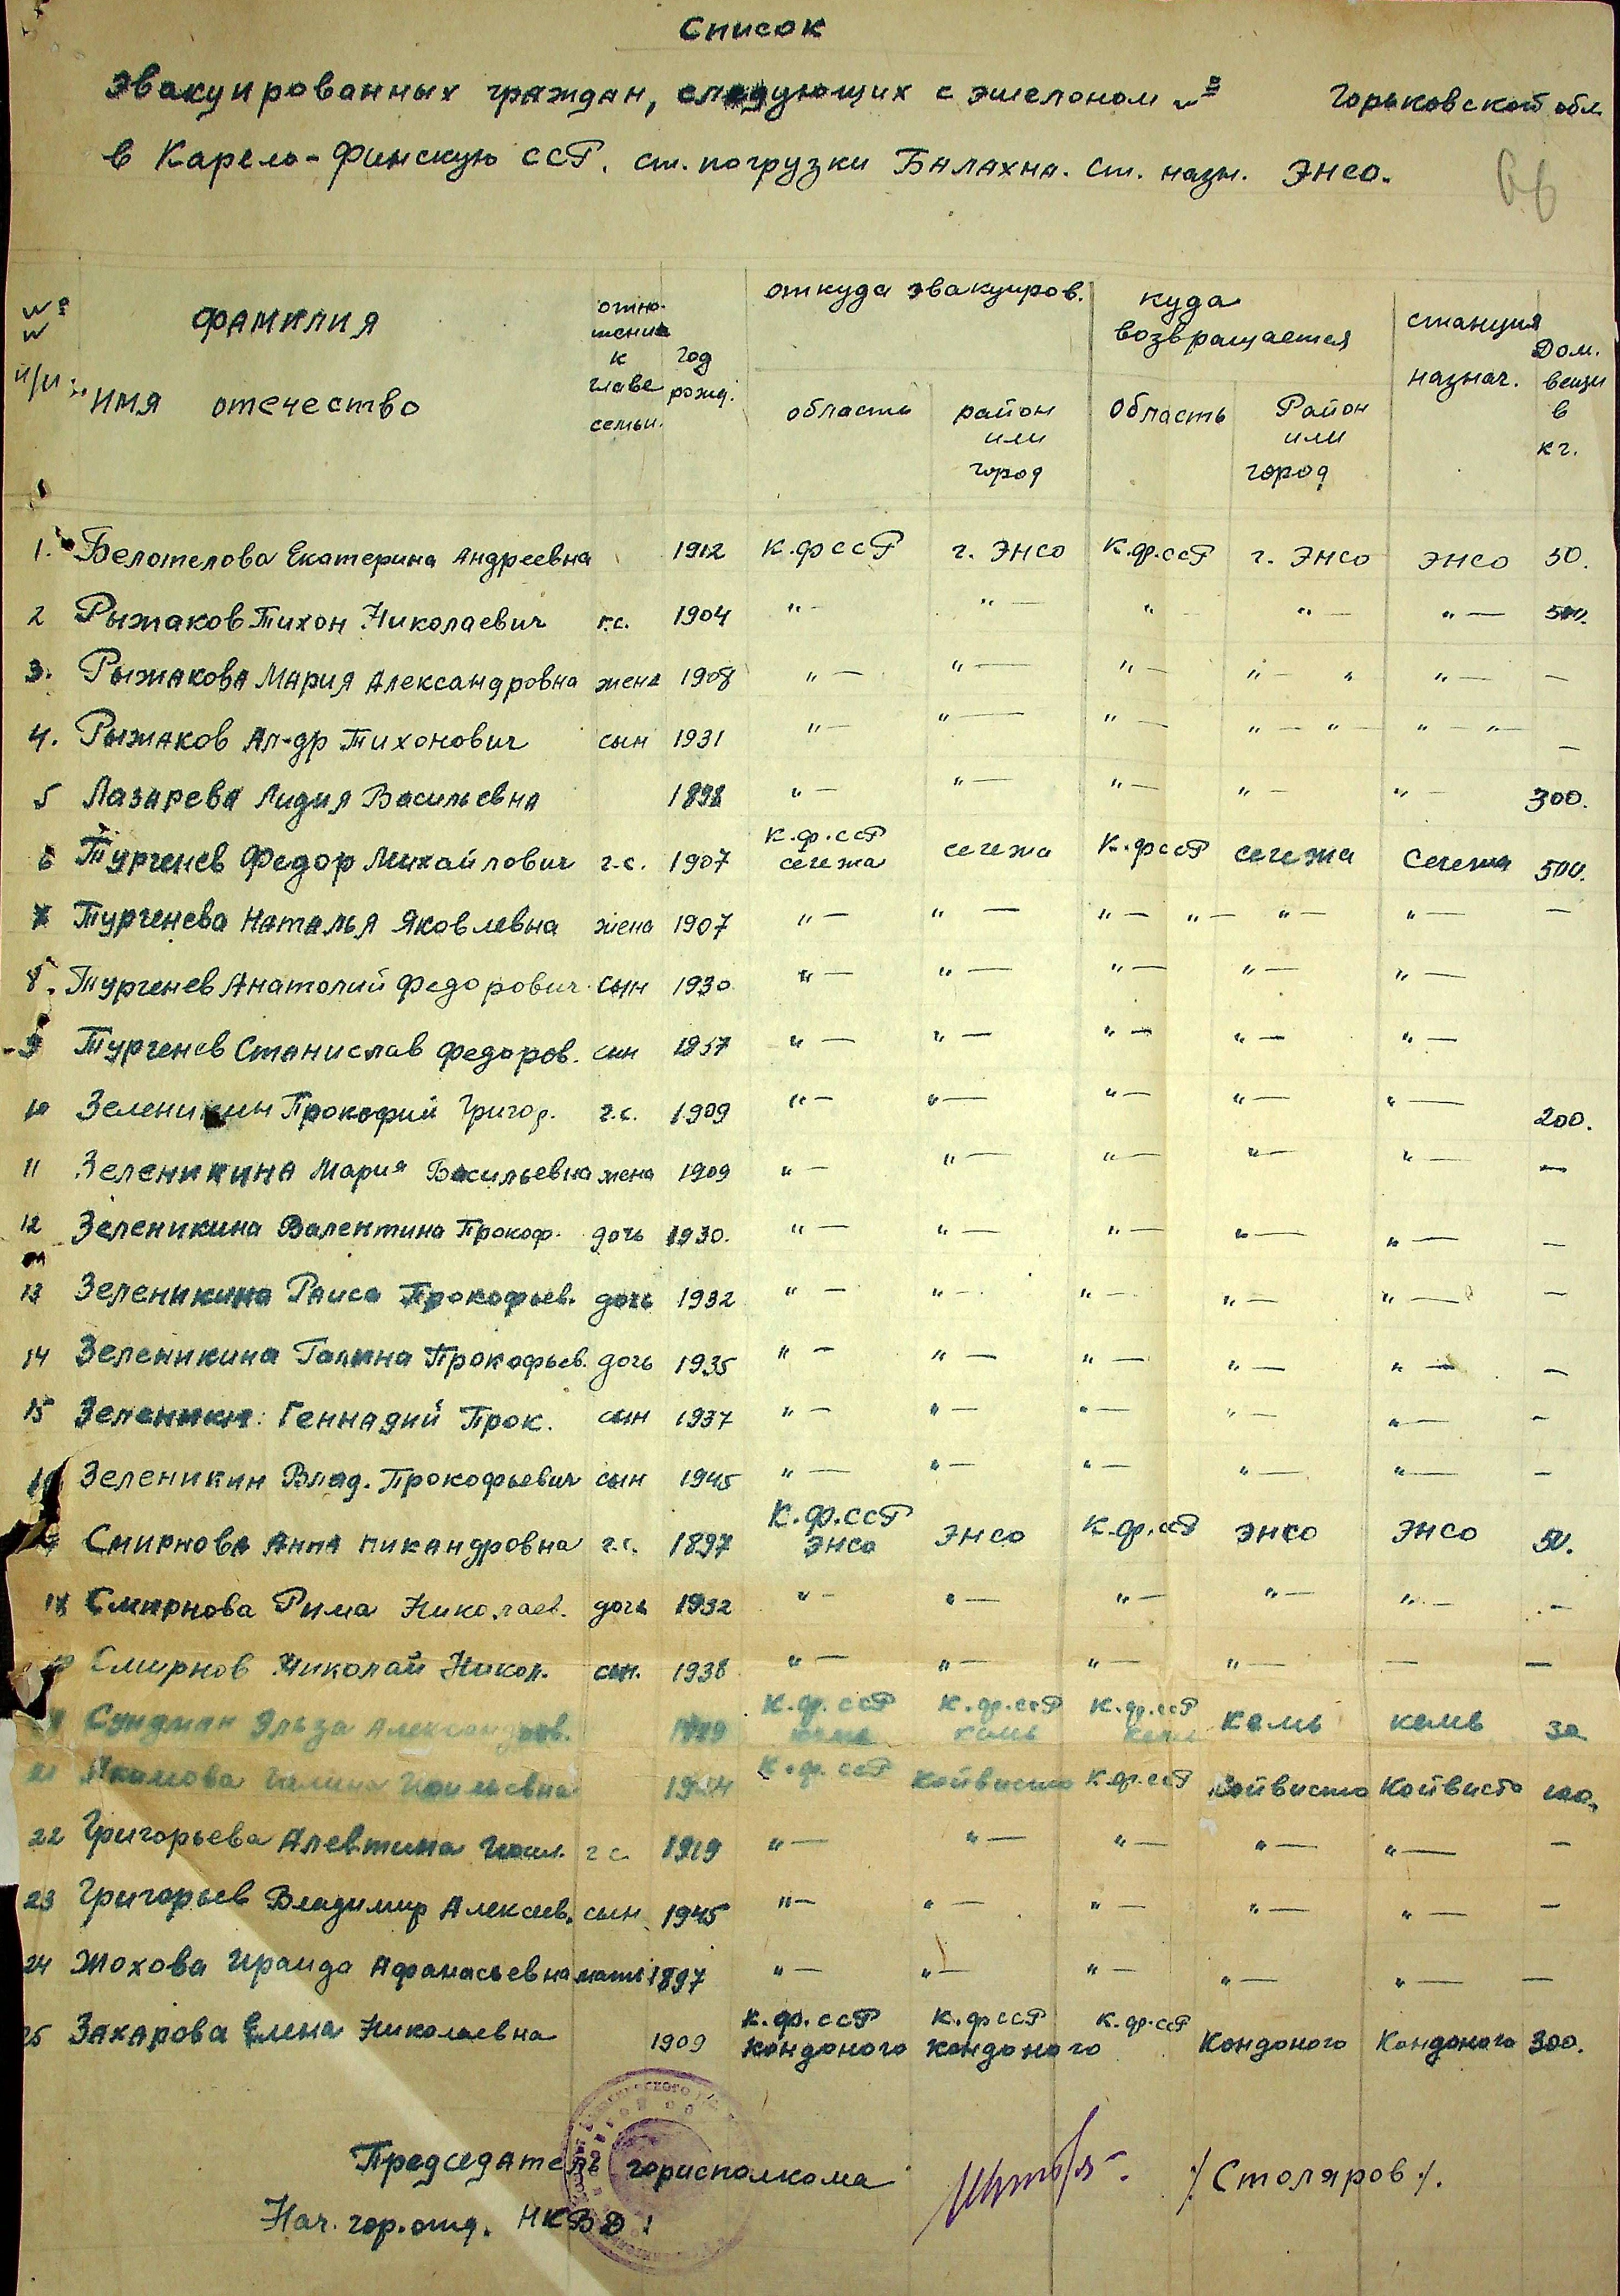 Список
Эвакуированных граждан, следующих с эшелоном №                Горьковской обл
в Карело-Финскую ССР. ст. погрузки Балахна. Ст. назн. Энсо.
66
№ № п/п   фамилия имя отчество   отношение к главе семьи.   год рожд.   откуда эвакуиров.   куда возвращается   станция назнач.   Дом. вещи в кг.
область   район или город   Область   Район или город
1. Белотелова Екатерина Андреевна 1912 К.ф ССР г. Энсо К.ф.ССР г. Энсо Энсо 50.
2 Рыжаков Тихон Николаевич г.с. 1904 "- "- " "- "- 500.
3. Рыжакова Мария Александровна жена 1908 "- "- "- "- " "- -
4. Рыжаков Ал-др Тихонович сын 1931 "- "- "- "- "- "- "- -
5 Лазарева Лидия Васильевна 1898 "- "- "- "- "- 300.
6 Тургенев Федор Михайлович г.с. 1907 К.ф.ССР сегежа сегежа К.ф ССР сегежа Сегежа 500.
7 Тургенева Наталья Яковлевна жена 1907 "- "- "- "- "- "- -
8. Тургенев Анатолий Федорович сын 1930 "- "- "- "- "-
9 Тургенев Станислав Федоров. сын 1937 "- "- "- "- "-
10 Зеленикин Прокофий Григор. г.с. 1909 "- "- "- "- "- 200.
11 Зеленикина Мария Васильевна жена 1909 "- "- "- "- "- -
12 Зеленикина Валентина Прокоф. дочь 1930. "- "- "- "- "- -
13 Зеленикина Раиса Прокофьев. дочь 1932 "- "- "- "- "- -
14 Зеленикина Галина Прокофьев. дочь 1935 "- "- "- "- "- -
15 Зеленикин Геннадий Прок. сын 1937 "- "- "- "- "- -
16 Зеленикин Влад. Прокофьевич сын 1945 "- "- "- "- "- -
17 Смирнова Анна Никандровна г.с. 1897 К.ф.ССР Энсо Энсо К.ф.ССР Энсо Энсо 50.
18 Смирнова Рима Николаев. дочь 1932 "- "- "- "- "- -
19 Смирнов Николай Никол. сын. 1938 "- "- "- "- - -
Эльза К.ф.ССР К.ф.ССР кемь К.ф.ССР Кемь кемь 30
21 Галина К.ф.ССР Койвисто К.ф.ССР Койвисто Койвисто 100.
22 Григорьева Алевтина г.с. 1919 "- "- "- "- "- -
23 Григорьев Владимир Алексеев. сын 1945 "- "- "- "- "- -
24 Жохова Ираида Афанасьевна мать 1897 "- "- "- "- "- -
25 Захарова Елена Николаевна 1909 К.ф.ССР Кондопого К.ф ССР Кондопого К.ф.ССР Кондопого Кондопого 300.
Председатель горисполкома /Столяров/.
Нач. гор.отд. НКВД: